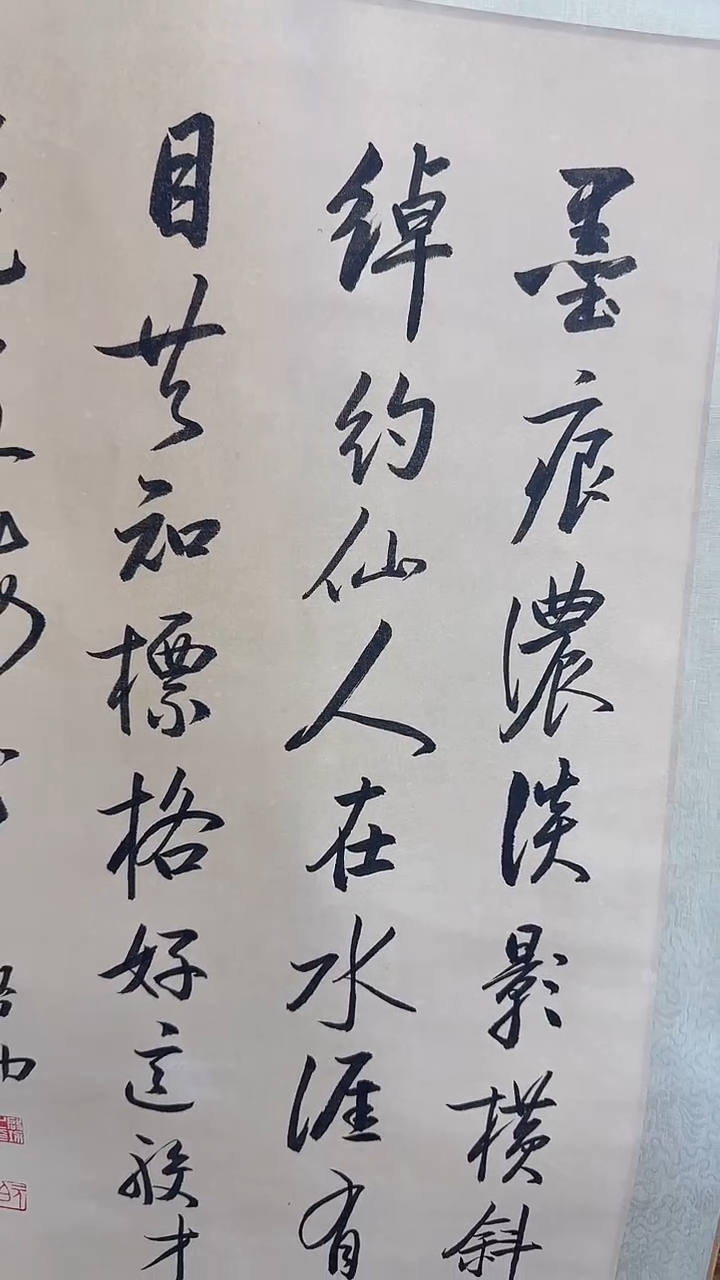 墨痕濃淡影橫斜
綽約仙人在水涯有
目共知標格好這般才